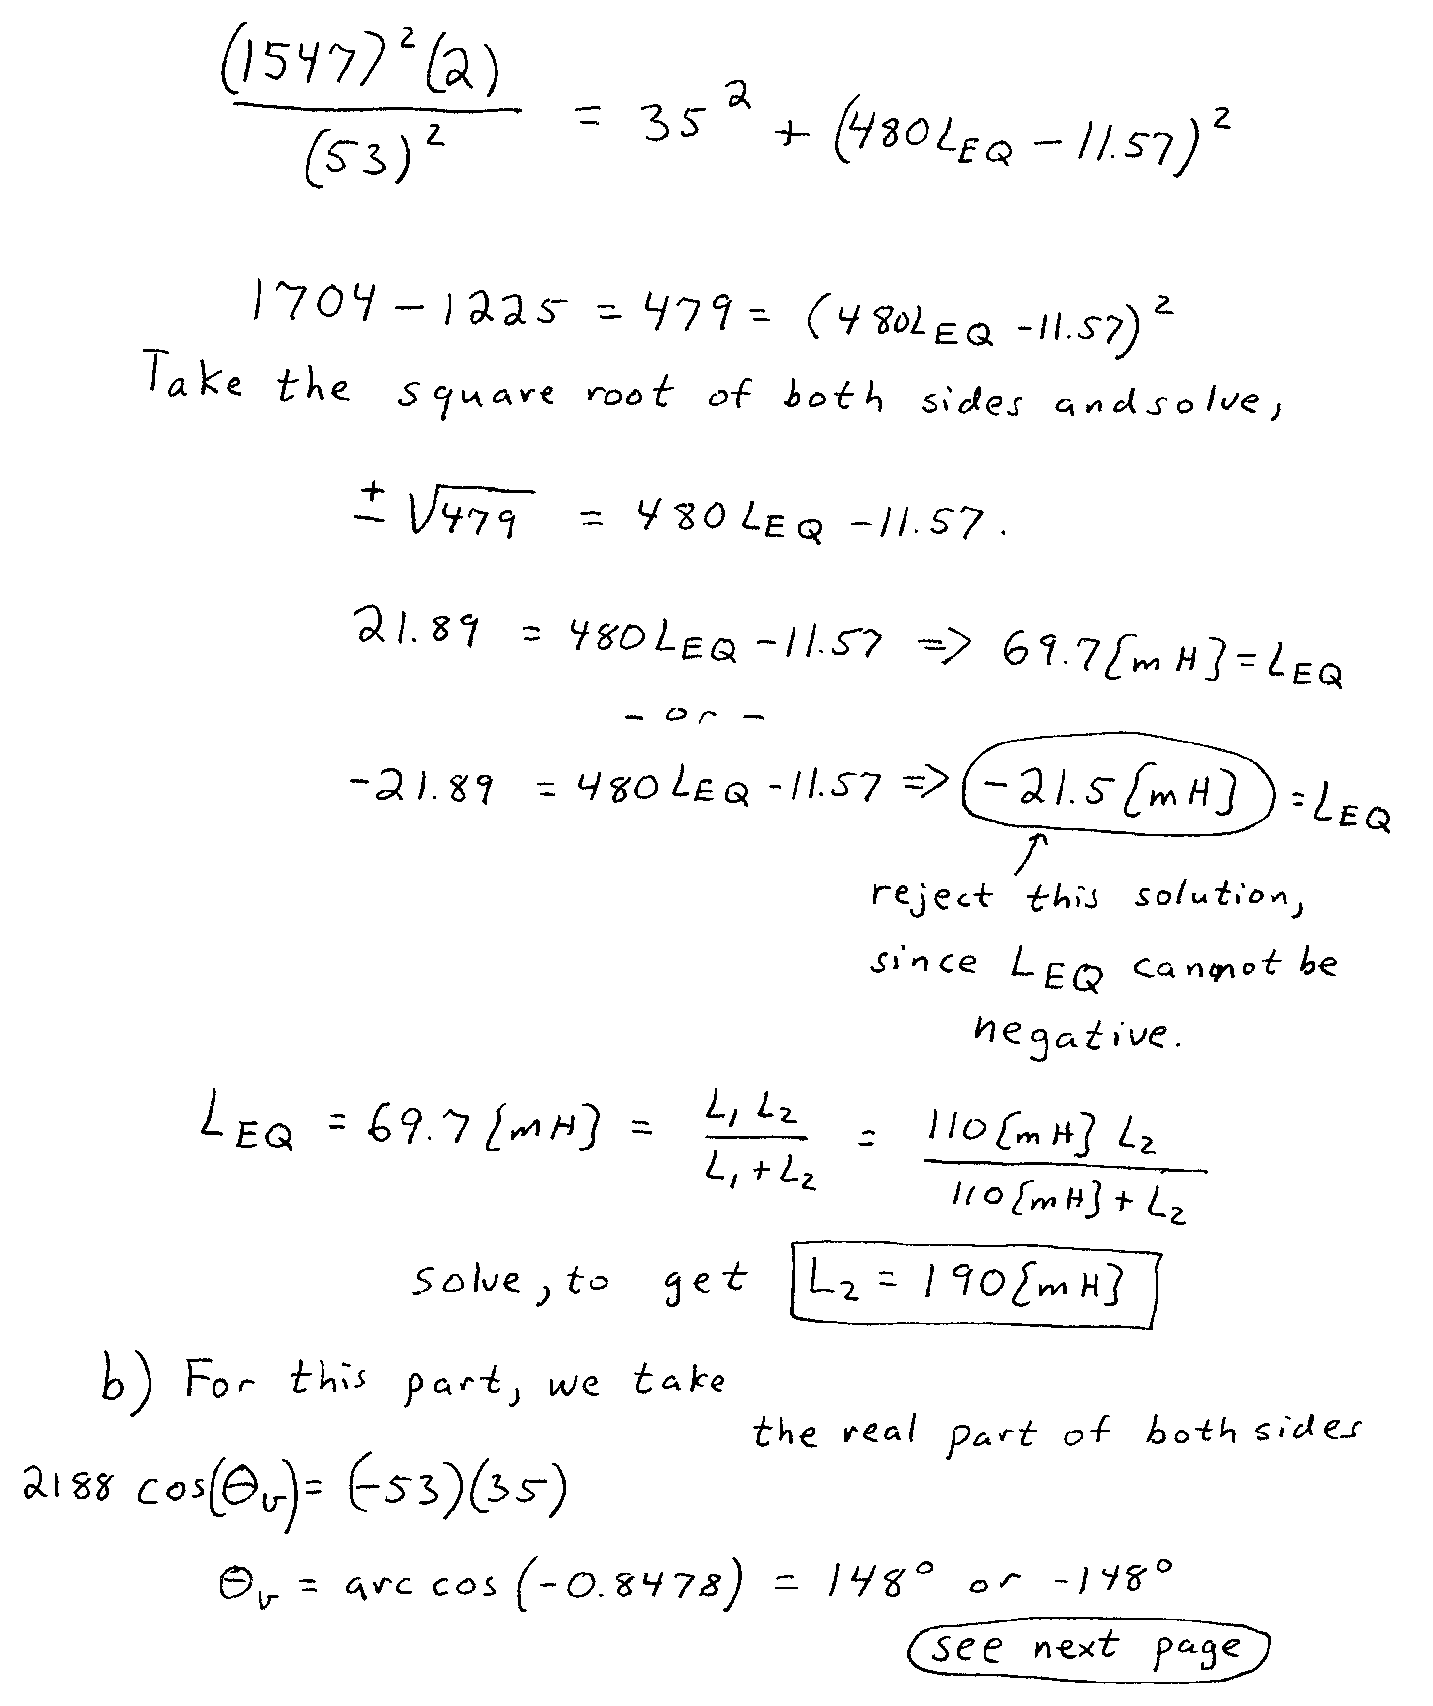 (1547)²(2) / (53)² = 35² + (480L_EQ − 11.57)²
1704 − 1225 = 479 = (480L_EQ − 11.57)²
Take the square root of both sides and solve,
± √479 = 480 L_EQ − 11.57.
21.89 = 480 L_EQ − 11.57 => 69.7[mH] = L_EQ
- or -
-21.89 = 480 L_EQ - 11.57 => -21.5[mH] = L_EQ
↑
reject this solution,
since L_EQ cannot be
negative.
L_EQ = 69.7[mH] = L₁ L₂ / L₁ + L₂ = 110[mH] L₂ / 110[mH] + L₂
solve, to get L₂ = 190[mH]
b) For this part, we take
the real part of both sides
2188 cos(θ_v) = (-53)(35)
θ_v = arc cos (-0.8478) = 148° or -148°
see next page